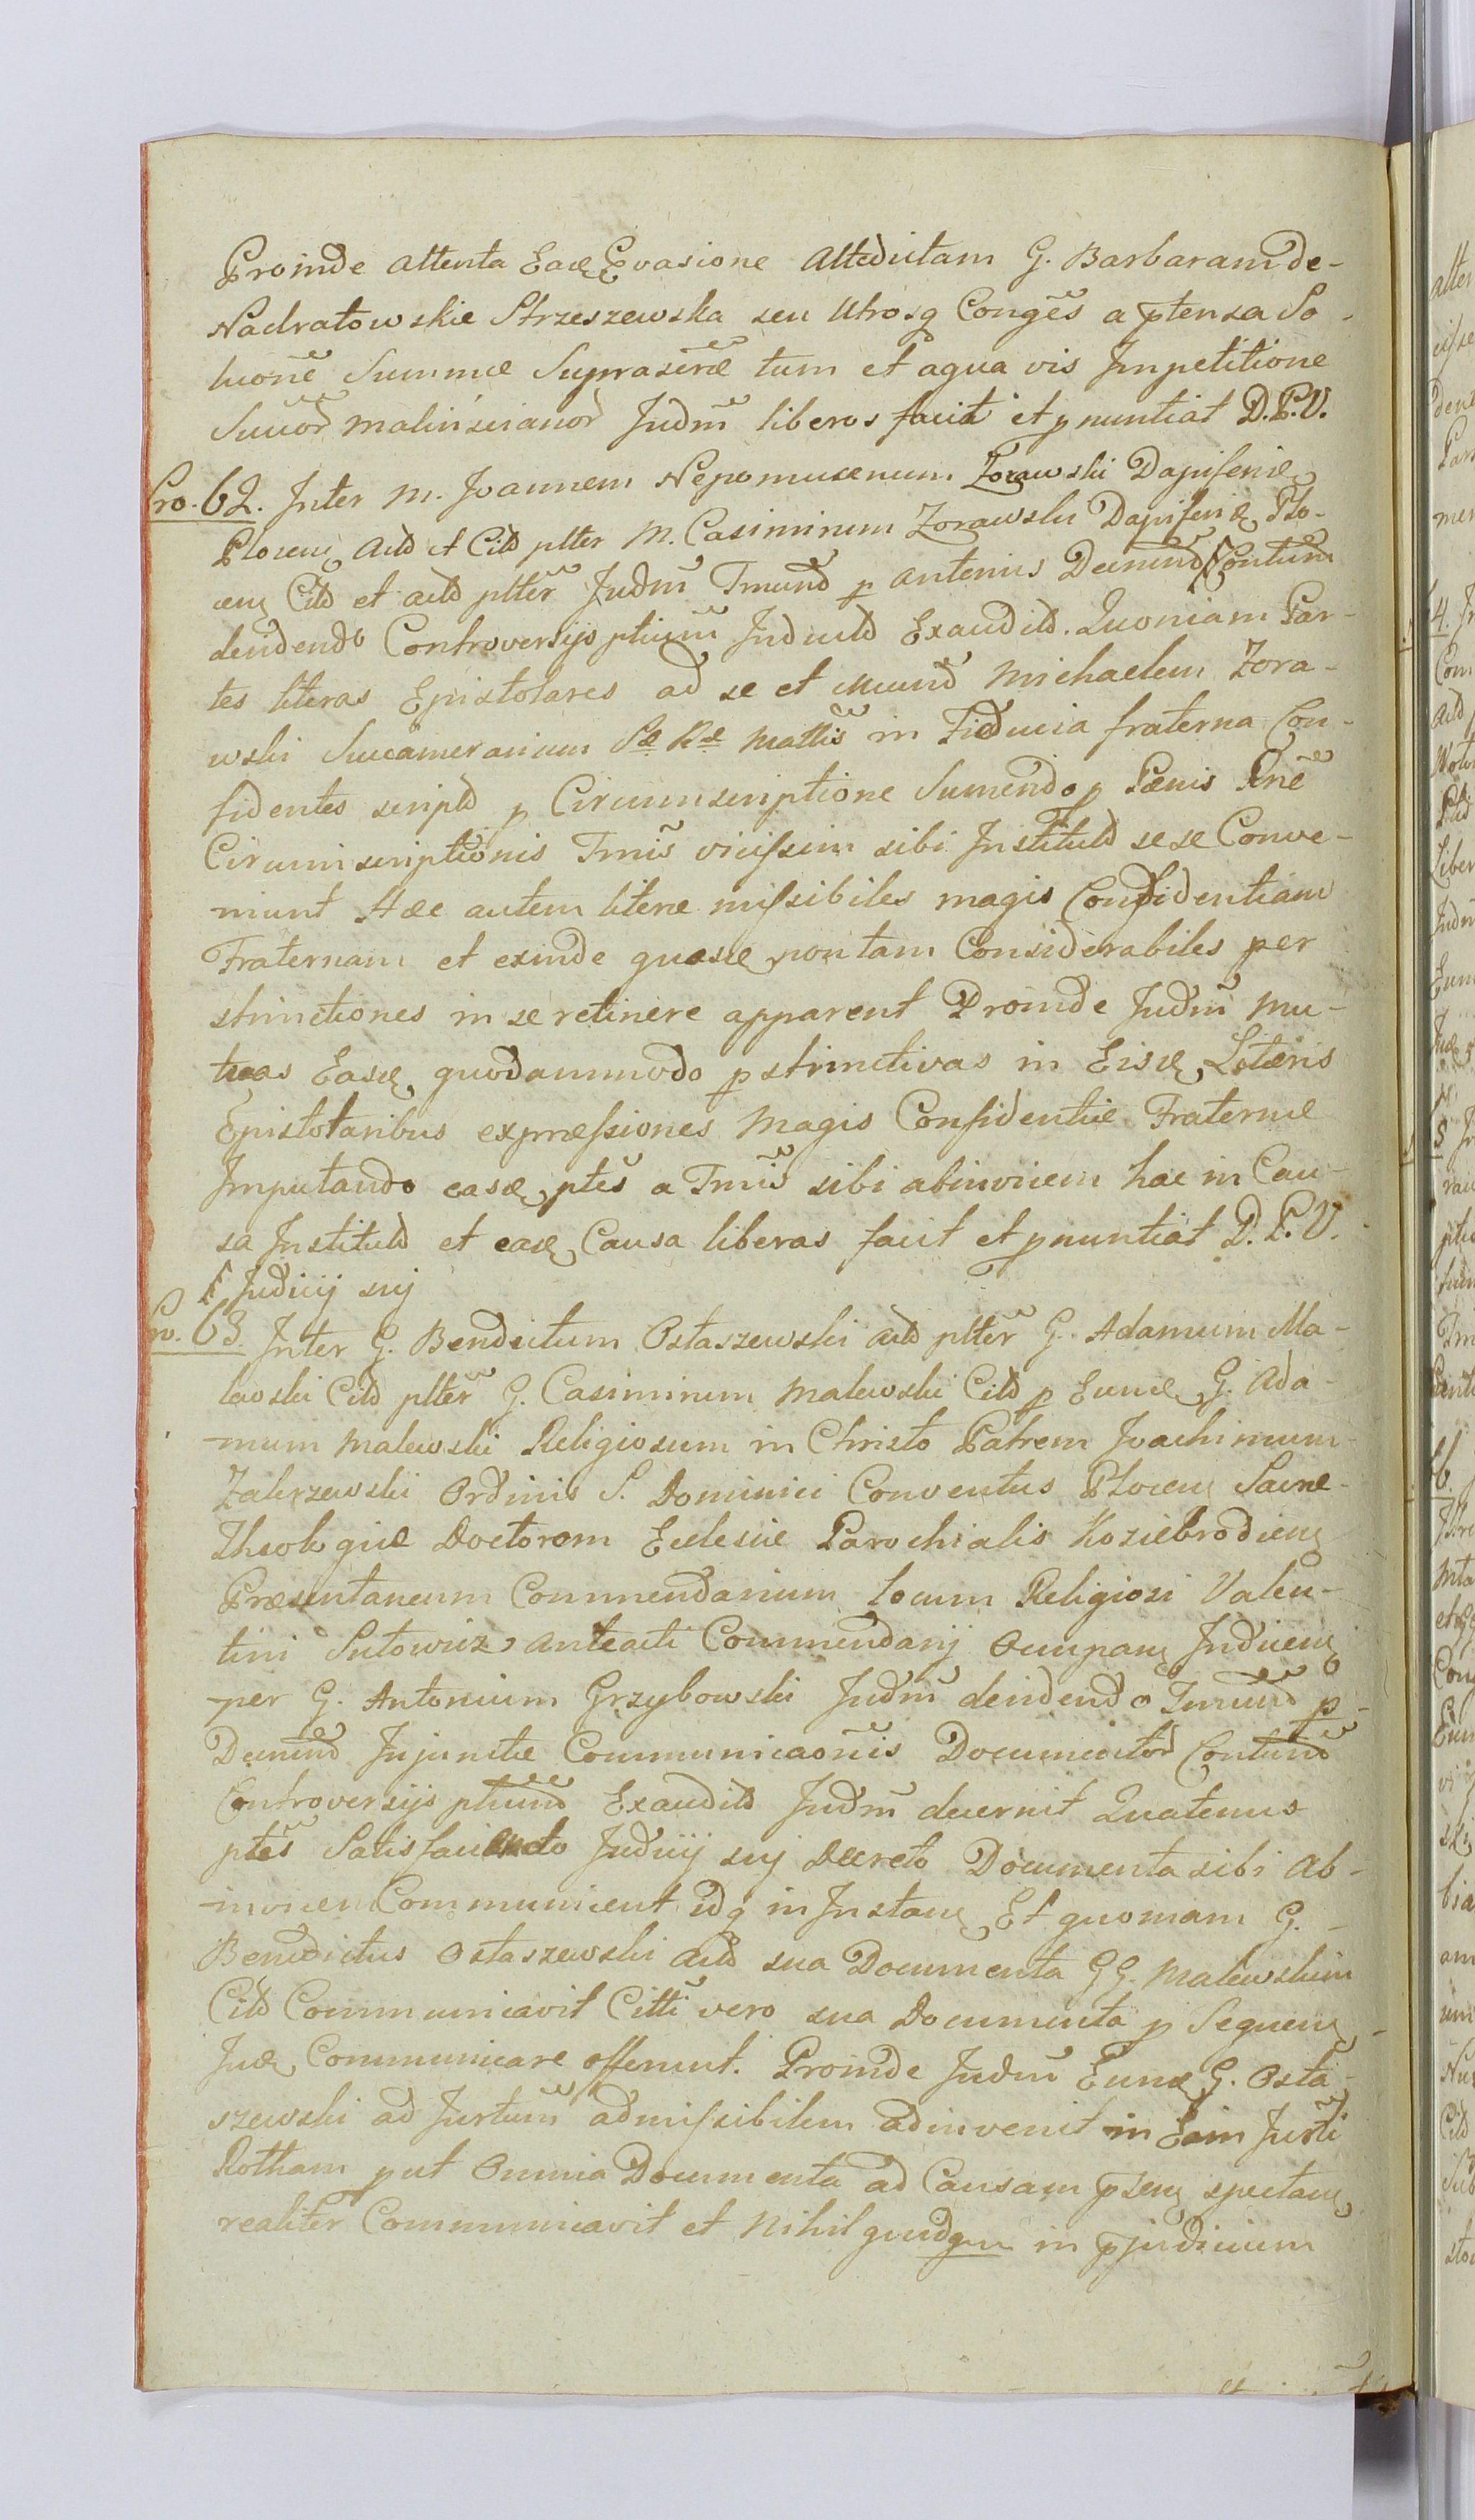 Proinde attenta Eadę Evasione Attedictam G. Barbaram de-
Nadratowskie Strzeszewska seu Utrosq Congẽs a ptensa So-
luoñe Summæ Suprascræ tum et aqua vis Impetitione
Suuor Malinscianor Judm̃ liberos facit et pnuntiat D.P.V.
Pro. 62. Inter M. Joannem Nepomucenum Zorawski Dapiferię
Plocenę Actd et Citd plter M. Casimirum Zorawski Dapiferię Plo-
cenę Citd et actd pltẽr Judm̃ Tmund p antenius Decmnd Contum
decidendo Controversijs ptium̃ Inductd Exauditd. Quoniam Par-
tes literas Epistolares ad se et Mund Michaelem Zora-
wski Succamerarium Sæ Ræ Mattis in Fiducia fraterna Con-
fidentes scriptd p Circumscriptione Sumendo p Pænis Pnẽ
Circumscriptionis Tmis vicissim sibi Institutd sese Conve-
niunt Hæ autem literæ missibiles magis Confidentiam
Fraternam et exinde quasdę non tam Considerabiles per
strinctiones in se retinere apparent Proinde Judm̃ Mu-
tuas Easdę quodammodo pstrinctivas in Eisdę Literis
Epistolaribus expressiones Magis Confidentiæ Fraternæ
Imputando easdę ptẽs a Tmis sibi abinvicem hac in Cau-
sa Institutd et eadę Causa liberas facit et pnuntiat D.P.V.
Judicij sui
Pro. 63. Inter G. Bendictum Ostaszewski actd pltẽr G. Adamum Ma-
lewski Citd pltẽr G. Casimirum Malewski Citd p Eundę G. Ada-
mum Malewski Religiosum in Christo Patrem Joachimum
Zakrzewski Ordinis S. Dominici Conventus Plocenę Sacræ-
Theologiæ Doctorem Ecclesiæ Parochialis Koziebrodienę
Præsentaneum Commendarium locum Religiosi Valen-
tini Sutowicz anteacti Commendarij Occupanę Inducenę
per G. Antonium Grzybowski Judm̃ decidendo Tmund p
Decmnd Injunctæ Communicaonis Documentor Contund
Controversijs ptiund Exauditd Judm̃ decernit Quatenus
ptẽs Satisfaciendo Judicij sui Decreto Documenta sibi Ab-
invicem Communicent idq in Instanę Et quoniam G. -
Benedictus Ostaszewski actd sua Documenta GG. Malewskim
Citd Communicavit Citti vero sua Documenta p Sequenę
Judę Communicare offerunt. Proinde Judm̃ Eundę G. Osta-
szewski ad Jurtum admissibilem adinvenit in Eam Jurti
Rotham put Omnia Documenta ad Causam psenę spectanę
realiter Communicavit et Nihil quidquã in pjudicium